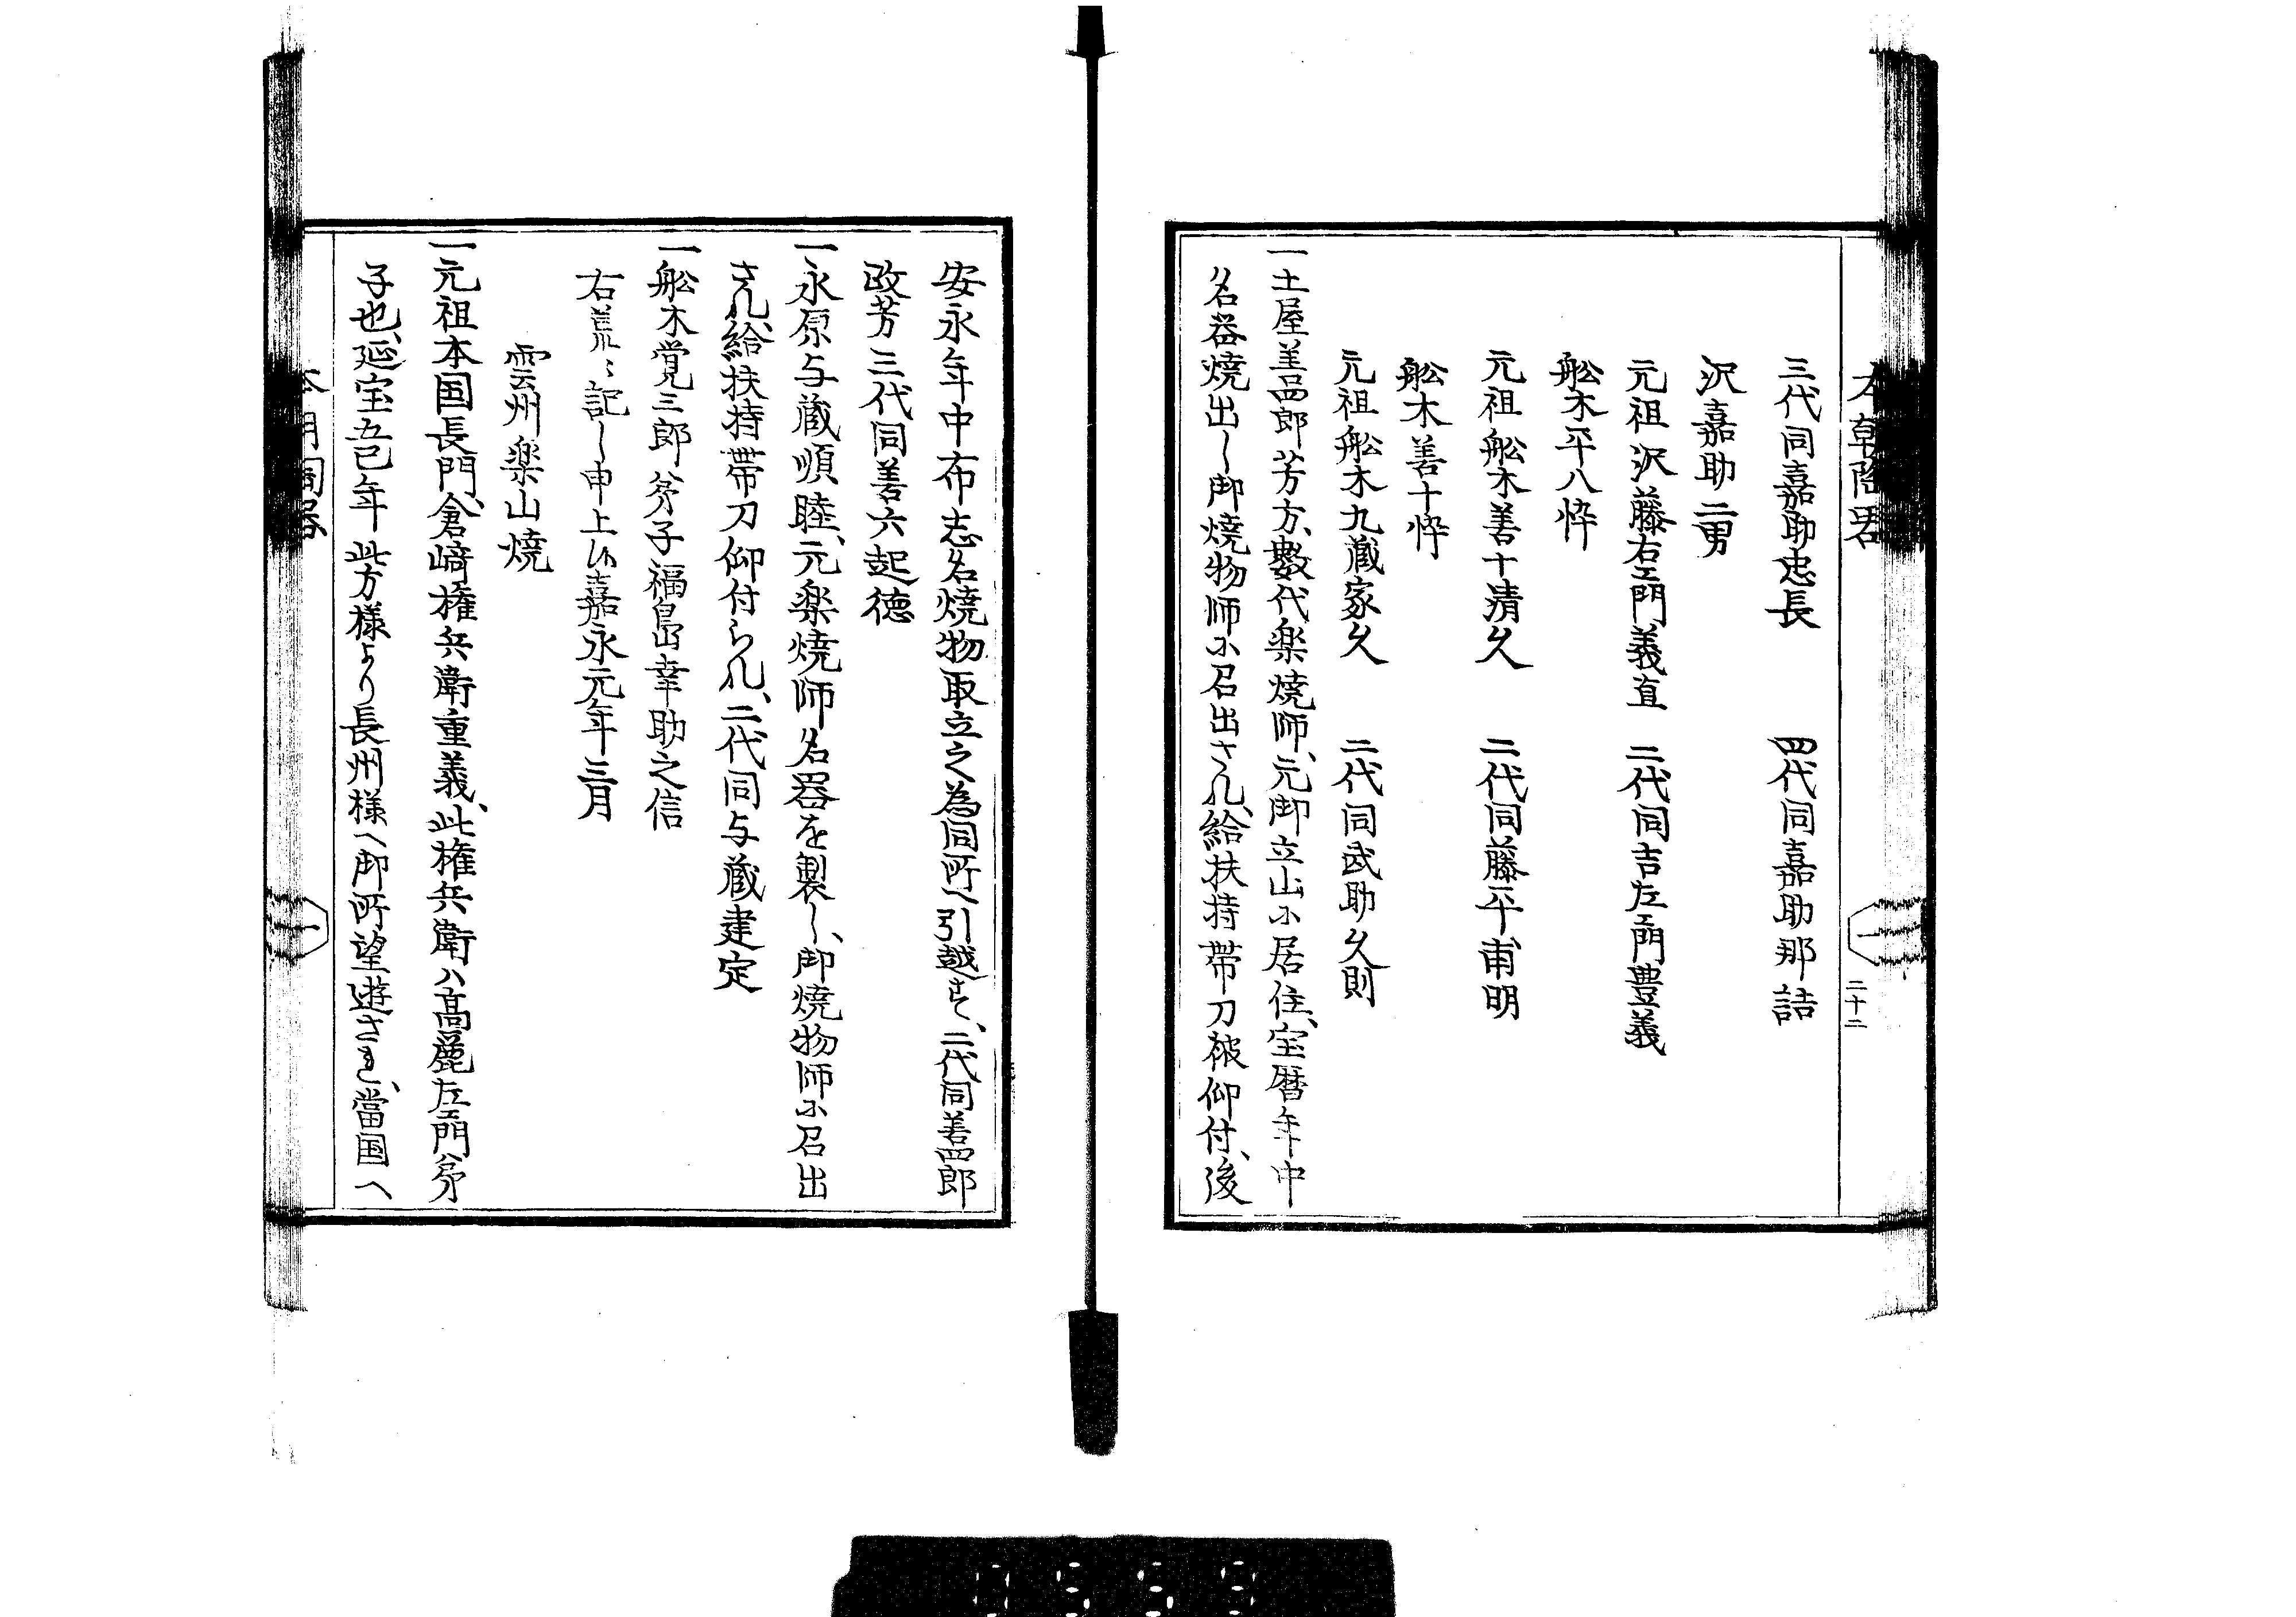 本朝陶器 二十二
三代同嘉助忠長 四代同嘉助那詰
沢嘉助二男
元祖沢藤右エ門義直 二代同吉左エ門豊義
舩木平八悴
元祖舩木善十清久 二代同藤平甫明
舩木善十悴
元祖舩木九蔵家久 二代同武助久則
一土屋善四郎芳方、数代楽焼師、元御立山ニ居住、宝暦年中
名器焼出し御焼物師ニ召出され、給扶持帯刀被仰付、後
安永年中布志名焼物取立之為同所へ引越す、二代同善四郎
政芳三代同善六起徳
一永原与蔵順睦、元楽焼師名器を製し、御焼物師ニ召出
され給扶持帯刀仰付られ、二代同与蔵建定
一舩木覚三郎弟子福島幸助之信
右荒々記し申上候嘉永元年三月
雲州楽山焼
一元祖本国長門、倉崎権兵衛重義、此権兵衛ハ高麗左エ門弟
子也、延宝五巳年此方様より長州様へ御所望遊され、當国へ
本朝陶器 一